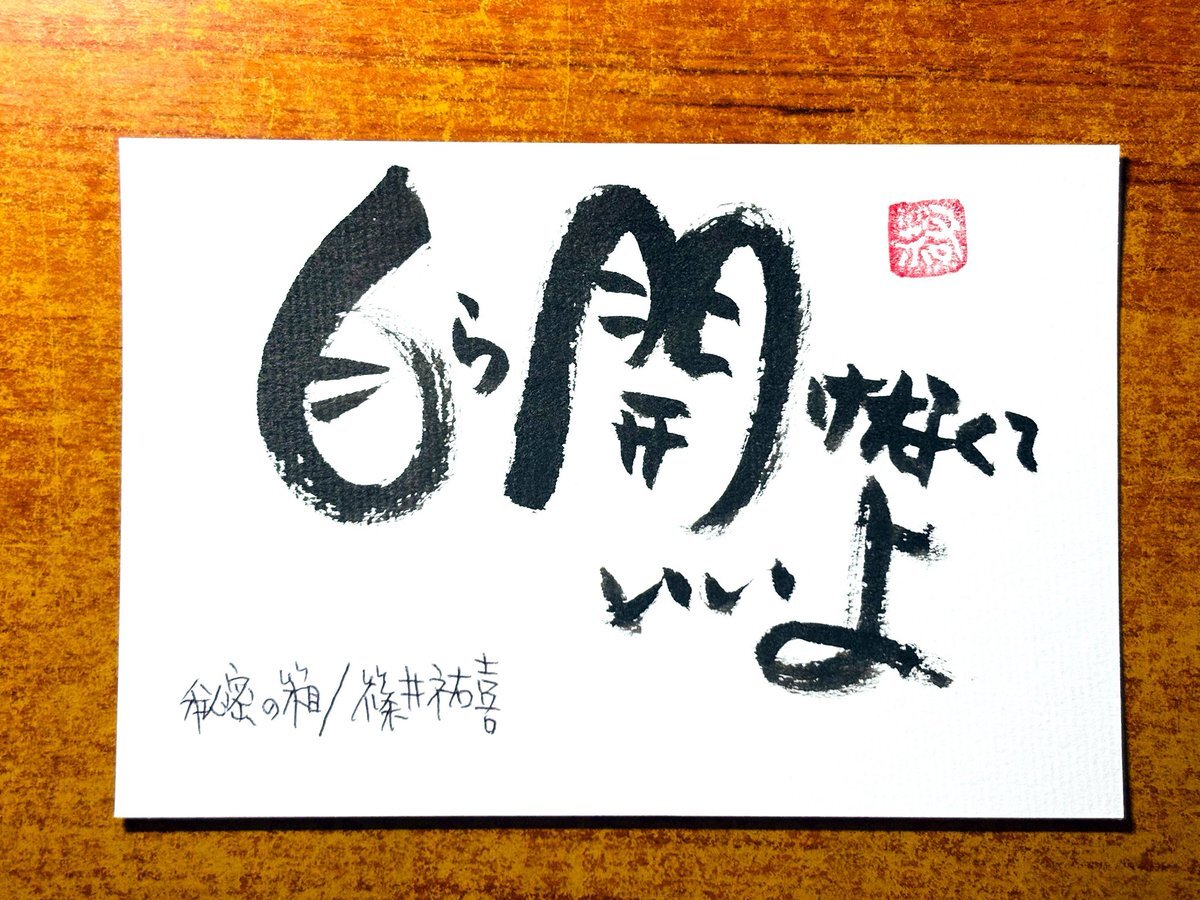 自ら開けなくて
いいよ
秘密の箱/篠井祐喜